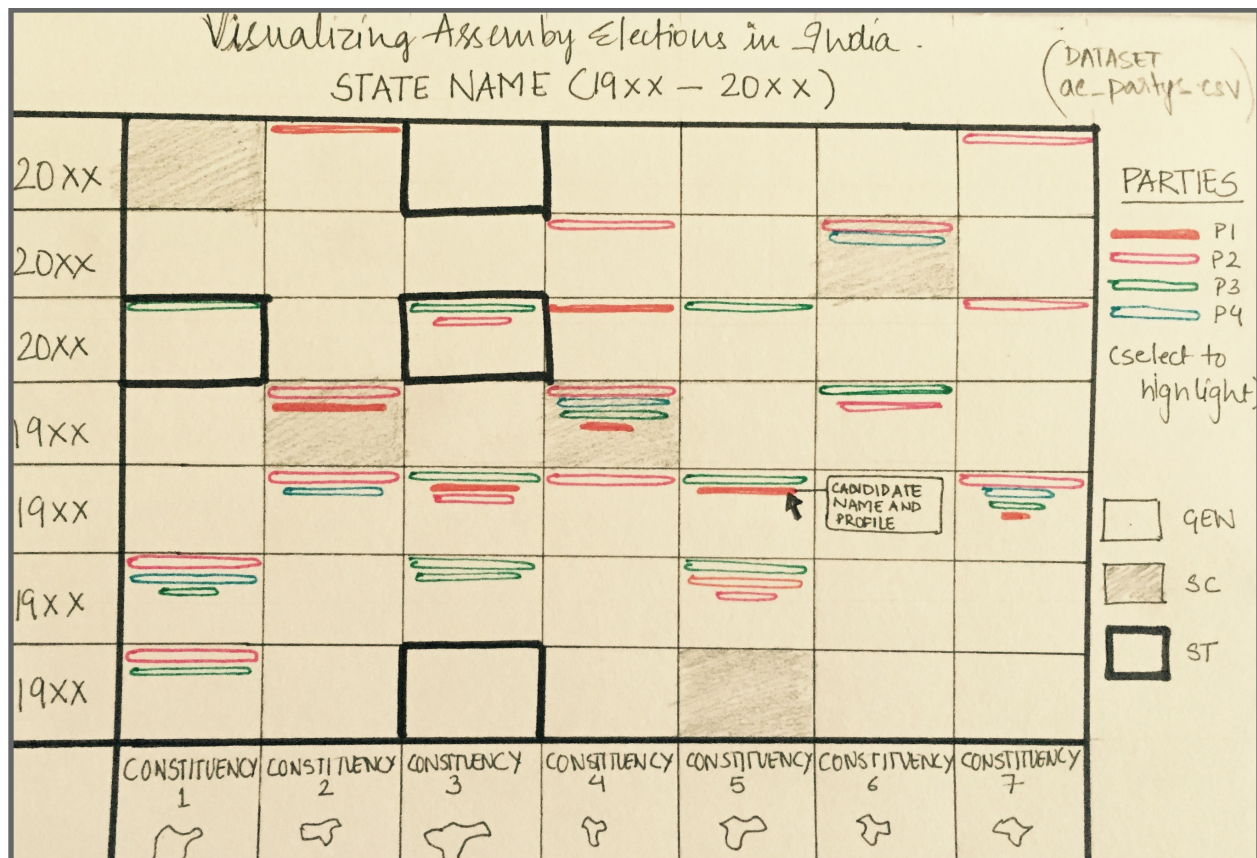 Visualizing Assemby Elections in India.
STATE NAME (19XX - 20XX)
(DATASET
ae_partys.csv)
20XX
20XX
20XX
19XX
19XX
19XX
19XX
PARTIES
P1
P2
P3
P4
(select to
highlight)
CANDIDATE
NAME AND
PROFILE
GEN
SC
ST
CONSTITUENCY
1
CONSTITUENCY
2
CONSTITUENCY
3
CONSTITUENCY
4
CONSTITUENCY
5
CONSTITUENCY
6
CONSTITUENCY
7